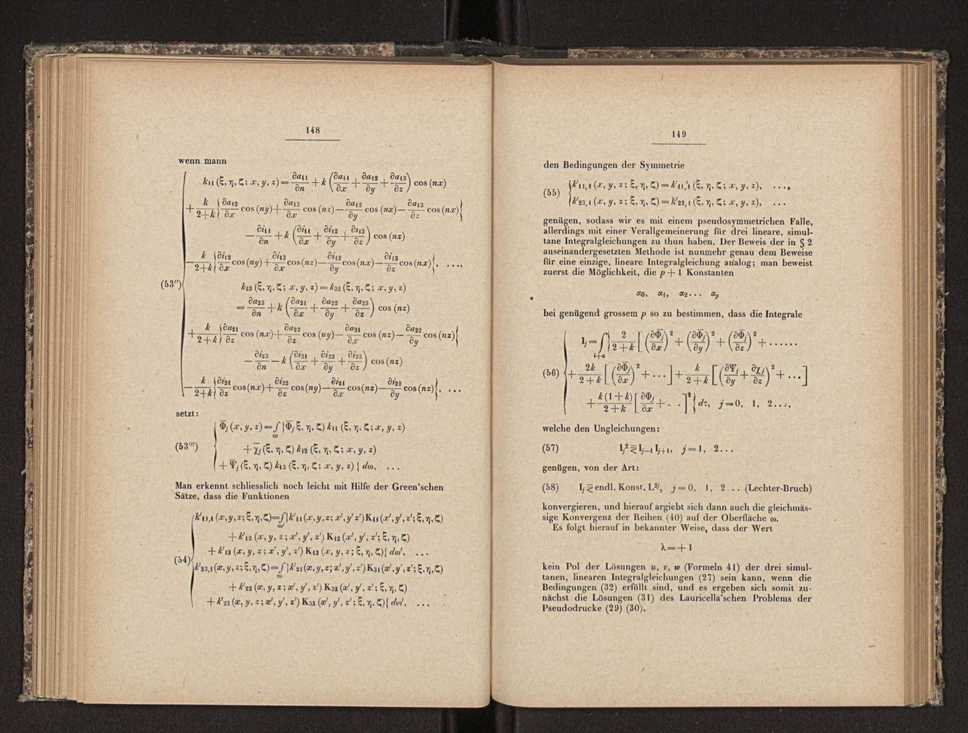 148
wenn mann
k₁₁ (ξ, η, ζ; x, y, z) = ∂a₁₁/∂n + k (∂a₁₁/∂x + ∂a₁₂/∂y + ∂a₁₃/∂z) cos (nx)
+ k/(2+k) {∂a₁₂/∂x cos (ny) + ∂a₁₃/∂x cos (nz) − ∂a₁₂/∂y cos (nx) − ∂a₁₃/∂z cos (nx)}
− ∂i₁₁/∂n + k (∂i₁₁/∂x + ∂i₁₂/∂y + ∂i₁₃/∂z) cos (nx)
− k/(2+k) {∂i₁₂/∂x cos (ny) + ∂i₁₃/∂x cos (nz) − ∂i₁₂/∂y cos (nx) − ∂i₁₃/∂z cos (nx)}, ....
(53'') k₁₃ (ξ, η, ζ; x, y, z) = k₃₂ (ξ, η, ζ; x, y, z)
= ∂a₂₃/∂n + k (∂a₂₁/∂x + ∂a₂₂/∂y + ∂a₂₃/∂z) cos (nz)
+ k/(2+k) {∂a₂₁/∂z cos (nx) + ∂a₂₂/∂z cos (ny) − ∂a₂₁/∂x cos (nz) − ∂a₂₂/∂y cos (nz)}
− ∂i₂₃/∂n − k (∂i₂₁/∂x + ∂i₂₂/∂y + ∂i₂₃/∂z) cos (nz)
− k/(2+k) {∂i₂₁/∂z cos (nx) + ∂i₂₂/∂z cos (ny) − ∂i₂₁/∂x cos (nz) − ∂i₂₂/∂y cos (nz)}, ...
setzt:
Φ̄ⱼ (x, y, z) = ∫ω {Φⱼ ξ, η, ζ) k₁₁ (ξ, η, ζ; x, y, z)
(53''') + χ̄ⱼ (ξ, η, ζ) k₁₂ (ξ, η, ζ; x, y, z)
+ Ψ̄ⱼ (ξ, η, ζ) k₁₃ (ξ, η, ζ; x, y, z) } dω, ...
Man erkennt schliesslich noch leicht mit Hilfe der Green'schen
Sätze, dass die Funktionen
k'₁₁,₁ (x, y, z; ξ, η, ζ) = ∫ω {k'₁₁ (x, y, z; x' y' z') K₁₁ (x', y', z'; ξ, η, ζ)
+ k'₁₂ (x, y, z; x', y', z') K₁₂ (x', y', z'; ξ, η, ζ)
+ k'₁₃ (x, y, z; x', y', z') K₁₃ (x, y, z; ξ, η, ζ)} dω', ...
(54) k'₂₃,₁ (x, y, z; ξ, η, ζ) = ∫ω {k'₂₁ (x, y, z; x', y', z') K₃₁ (x', y', z'; ξ, η, ζ)
+ k'₂₂ (x, y, z; x', y', z') K₃₂ (x', y', z'; ξ, η, ζ)
+ k'₂₃ (x, y, z; x', y', z') K₃₃ (x', y', z'; ξ, η, ζ)} dω', ...
149
den Bedingungen der Symmetrie
(55) k'₁₁,₁ (x, y, z; ξ, η, ζ) = k'₁₁,₁ (ξ, η, ζ; x, y, z), ...,
k'₂₃,₁ (x, y, z; ξ, η, ζ) = k'₂₃,₁ (ξ, η, ζ; x, y, z), ...
genügen, sodass wir es mit einem pseudosymmetrichen Falle,
allerdings mit einer Verallgemeinerung für drei lineare, simul-
tane Integralgleichungen zu thun haben. Der Beweis der in § 2
auseinandergesetzten Methode ist nunmehr genau dem Beweise
für eine einzige, lineare Integralgleichung analog; man beweist
zuerst die Möglichkeit, die p + 1 Konstanten
α₀, α₁, α₂... αₚ
bei genügend grossem p so zu bestimmen, dass die Integrale
Iⱼ = ∫ᵢ₊ₐ { 2/(2+k) [ (∂Φ̄ⱼ/∂x)² + (∂Φ̄ⱼ/∂y)² + (∂Φ̄ⱼ/∂z)² + ......
(56) + 2k/(2+k) [ (∂Φ̄ⱼ/∂x)² + ... ] + k/(2+k) [ (∂Ψ̄ⱼ/∂y + ∂χⱼ/∂z)² + ... ]
+ k(1+k)/(2+k) [ ∂Φⱼ/∂x + .. ]² } dz, j = 0, 1, 2...,
welche den Ungleichungen:
(57) Iⱼ² ≶ Iⱼ₋₁ Iⱼ₊₁, j = 1, 2...
genügen, von der Art:
(58) Iⱼ ≶ endl. Konst. L²ʲ, j = 0, 1, 2 .. (Lechter-Bruch)
konvergieren, und hierauf argiebt sich dann auch die gleichmäs-
sige Konvergenz der Reihen (40) auf der Oberfläche ω.
Es folgt hierauf in bekannter Weise, dass der Wert
λ = + 1
kein Pol der Lösungen u, v, w (Formeln 41) der drei simul-
tanen, linearen Integralgleichungen (27) sein kann, wenn die
Bedingungen (32) erfüllt sind, und es ergeben sich somit zu-
nächst die Lösungen (31) des Lauricella'schen Problems der
Pseudodrucke (29) (30).